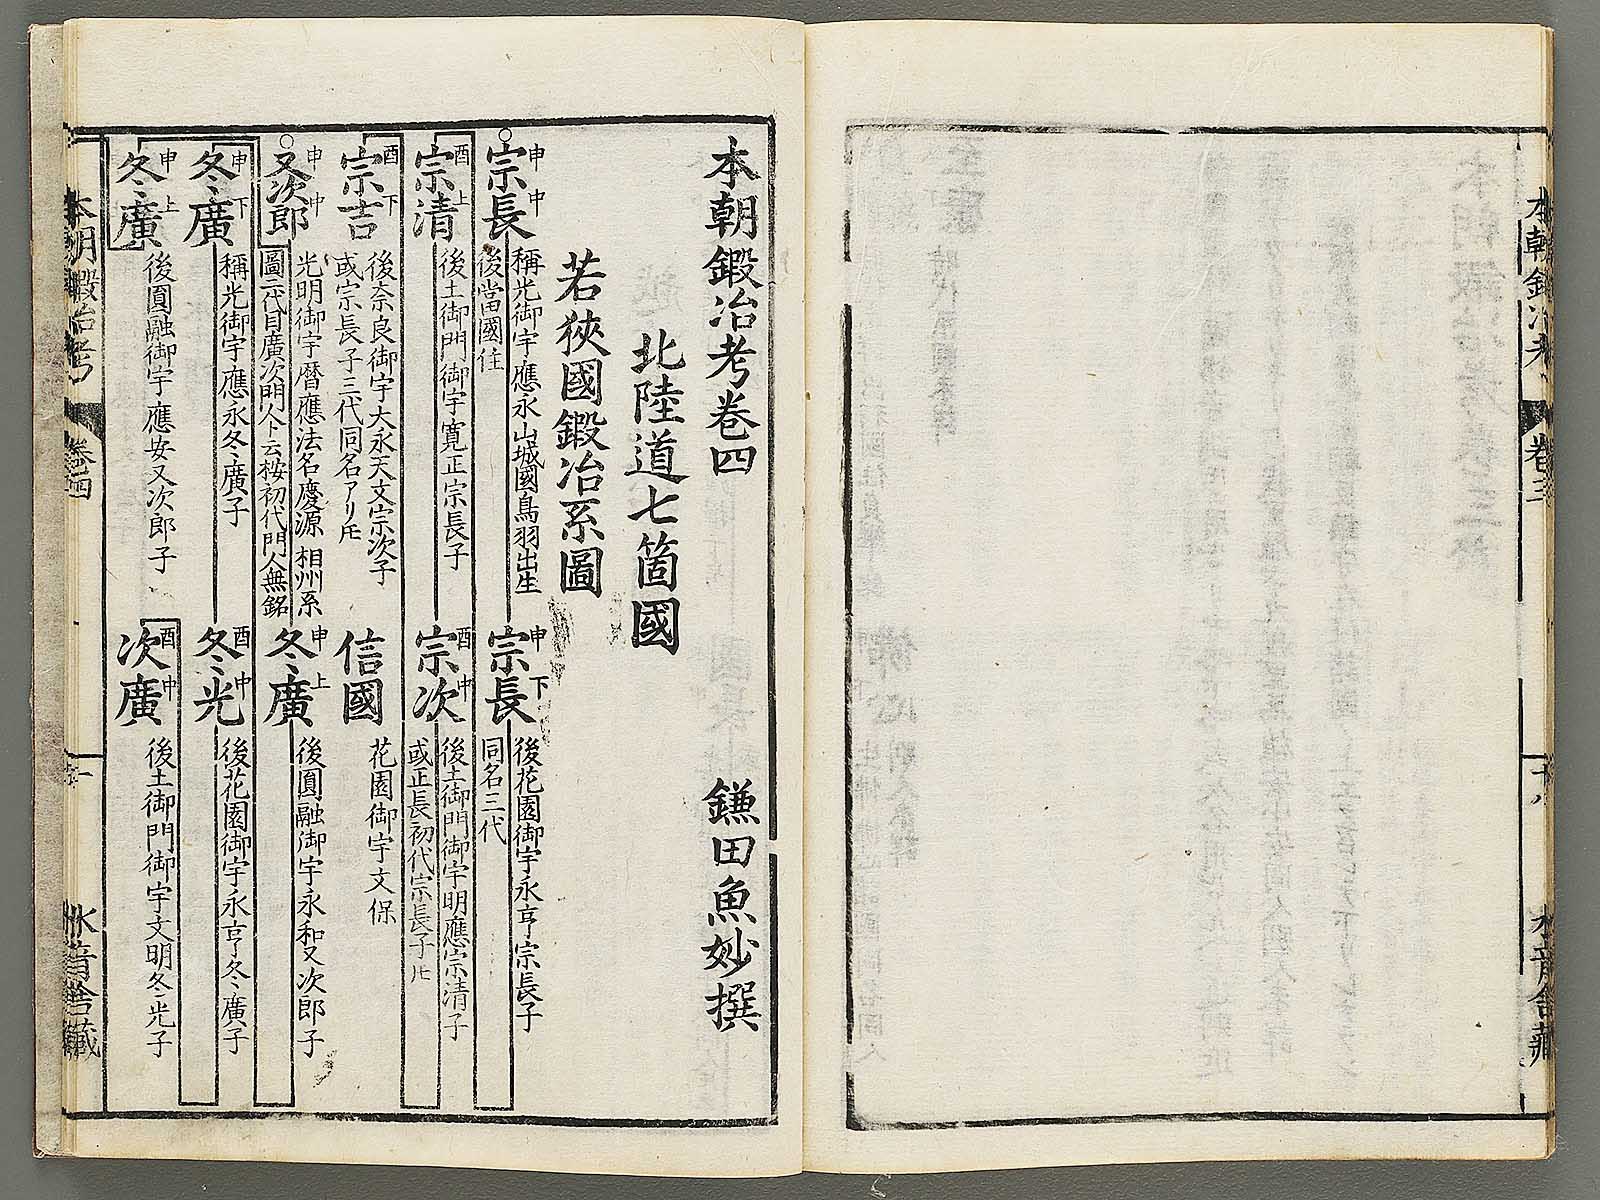 本朝鍛冶考
卷三
十八
水音舎藏
本朝鍛冶考卷四
鎌田魚妙撰
北陸道七箇國
若狹國鍛冶系圖
申中
宗長
稱光御宇應永山城國鳥羽出生
後當國住
申下
宗長
後花園御宇永享宗長子
同名三代
酉上
宗清
後土御門御宇寛正宗長子
酉中
宗次
後土御門御宇明應宗清子
或正長初代宗長子𪜈
酉下
宗吉
後奈良御宇大永天文宗次子
或宗長子三代同名アリ𪜈
信國
花園御宇文保
申中
又次郎
光明御宇暦應法名慶源 相州系
圖二代目廣次門人ト云桉初代門人無銘
申上
冬廣
後圓融御宇永和又次郎子
申下
冬廣
稱光御宇應永冬廣子
酉中
冬光
後花園御宇永享冬廣子
申上
冬廣
後圓融御宇應安又次郎子
酉中
次廣
後土御門御宇文明冬光子
本朝鍛冶考
卷四
一
水音舎藏